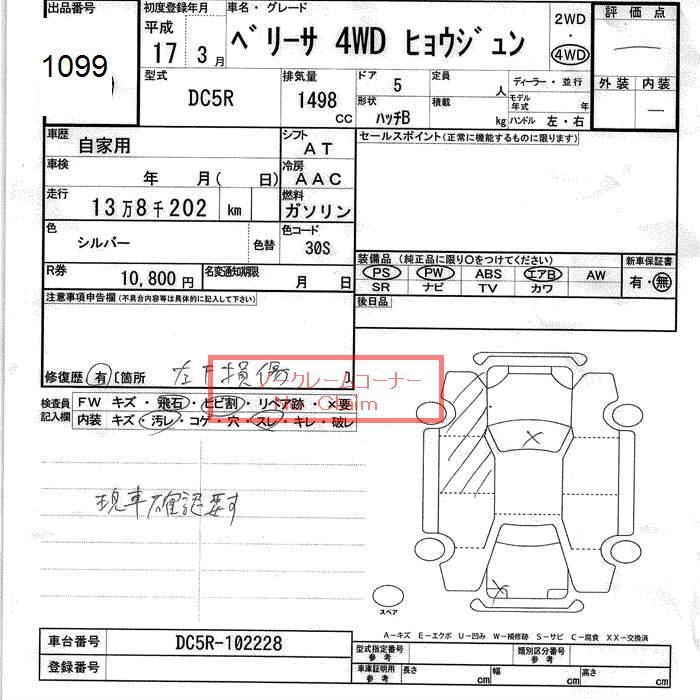 出品番号
1099
初度登録年月
平成
17年 3月
車名・グレード
ベリーサ 4WD ヒョウジュン
2WD
・
4WD
評価点
外装 内装
型式
DC5R
排気量
1498
CC
ドア 5
定員 人
形状
ハッチB
積載 kg
ディーラー・並行
モデル年式 年
ハンドル 左・右
車歴
自家用
シフト
AT
セールスポイント(正常に機能するものに限ります)
車検
年 月( 日)
冷房
AAC
走行
13万8千202 km
燃料
ガソリン
色
シルバー
色替
色コード
30S
R券
10,800円
名変通知期限
月 日
装備品(純正品に限り○をつけてください)
PS PW ABS エアB AW
SR ナビ TV カワ
新車保証書
有・無
後日品
注意事項申告欄(不具合内容等は具体的に記入して下さい)
修復歴 有 〔箇所 左下損傷 〕
ノークレームコーナー
No Claim
検査員記入欄
FW キズ・飛石・ヒビ割・リペア跡・×要
内装 キズ・汚レ・コゲ・穴・スレ・キレ・破レ
現車確認要す
X
X
スペア
A-キズ E-エクボ U-凹み W-補修跡 S-サビ C-腐食 XX-交換済
車台番号
DC5R-102228
登録番号
型式指定番号
参考
類別区分番号
参考
車庫証明用
参考
長さ cm
幅 cm
高さ cm